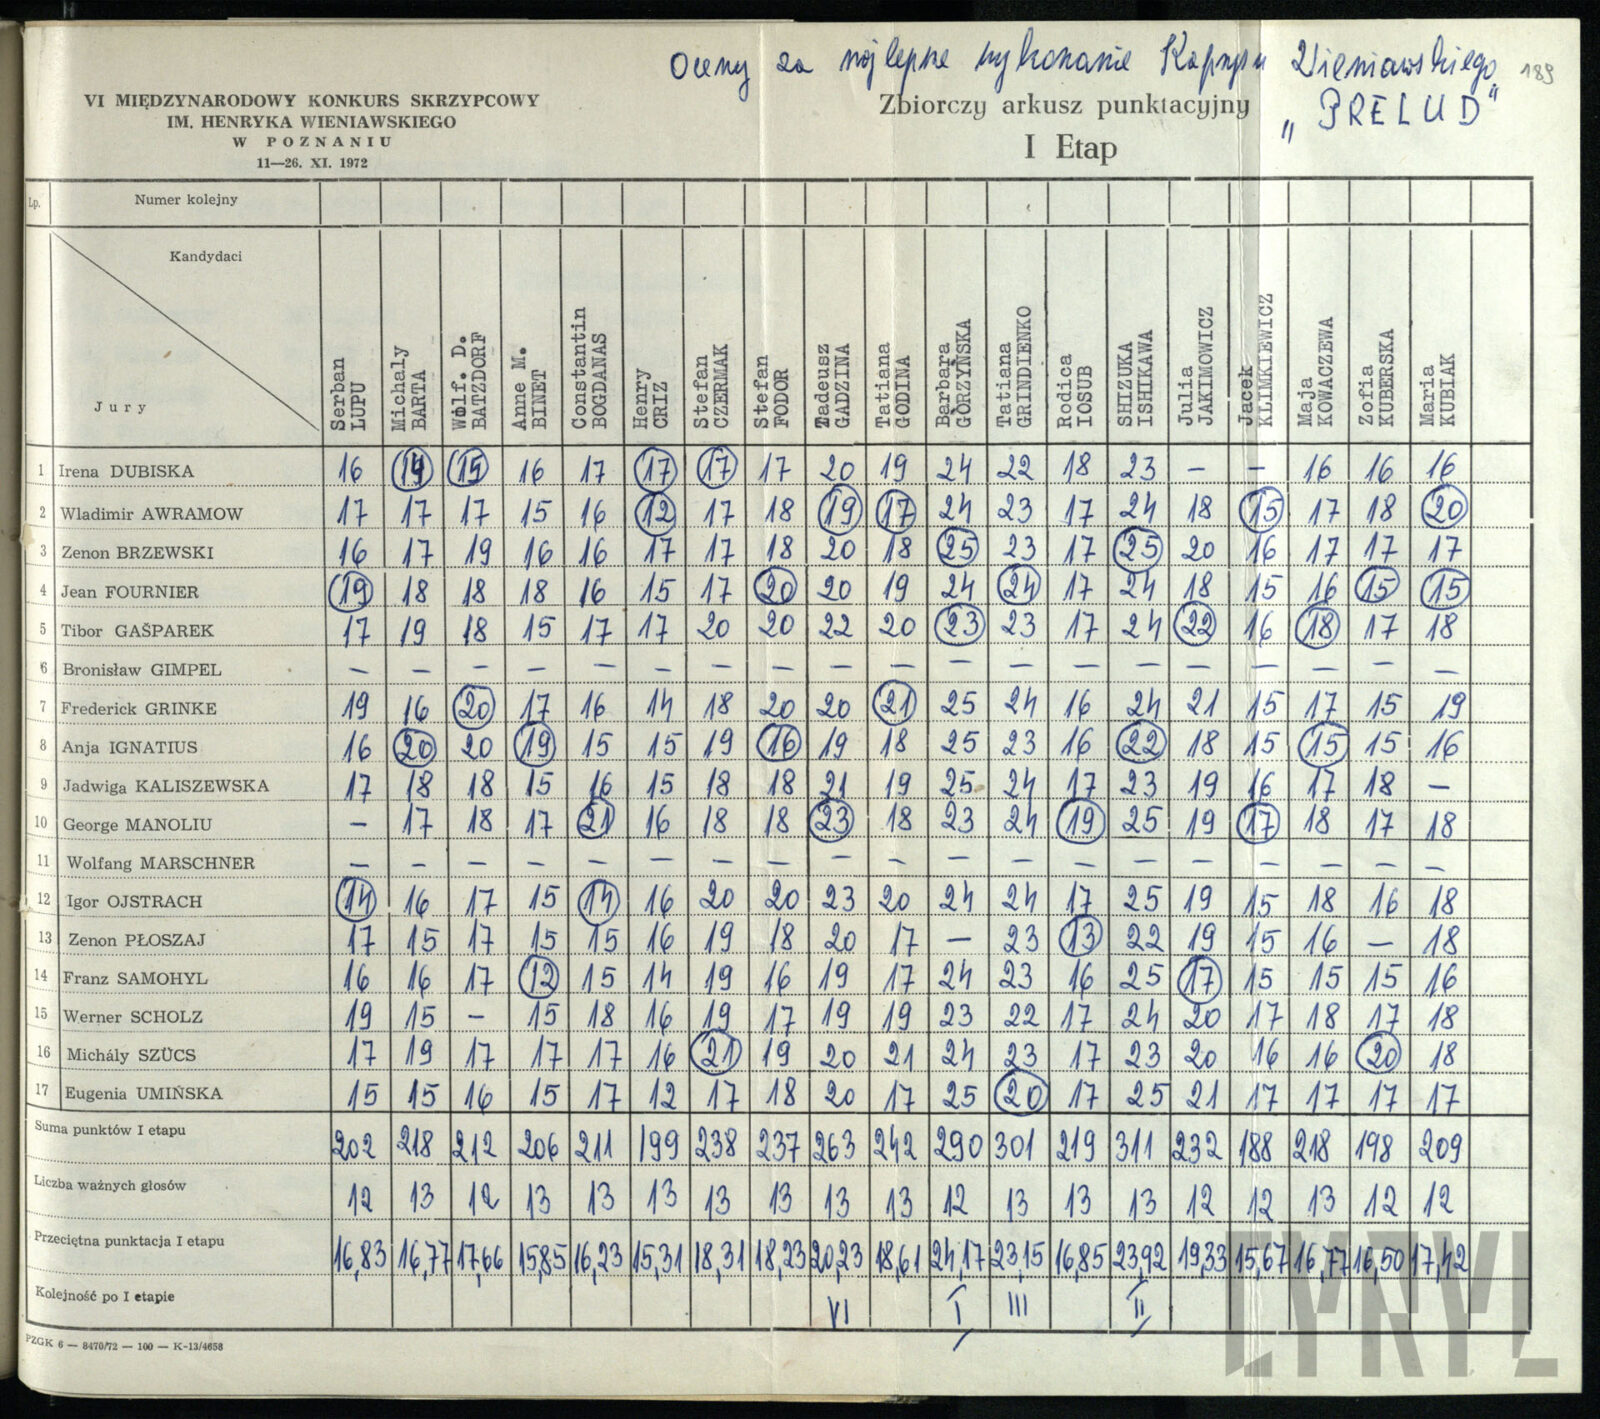 Oceny za najlepsze wykonanie Kaprysu Wieniawskiego
189
VI MIĘDZYNARODOWY KONKURS SKRZYPCOWY
IM. HENRYKA WIENIAWSKIEGO
W POZNANIU
11—26. XI. 1972
Zbiorczy arkusz punktacyjny
„PRELUD"
I Etap
Lp. Numer kolejny
Kandydaci
Jury
Serban LUPU
Michaly BARTA
Wolf. D. BATZDORF
Anne M. BINET
Constantin BOGDANAS
Henry CRIZ
Stefan CZERMAK
Stefan FODOR
Tadeusz GADZINA
Tatiana GODINA
Barbara GÓRZYŃSKA
Tatiana GRINDIENKO
Rodica IOSUB
SHIZUKA ISHIKAWA
Julia JAKIMOWICZ
Jacek KLIMKIEWICZ
Maja KOWACZEWA
Zofia KUBERSKA
Maria KUBIAK
1 Irena DUBISKA 16 14 15 16 17 17 17 17 20 19 24 22 18 23 — — 16 16 16
2 Wladimir AWRAMOW 17 17 17 15 16 12 17 18 19 17 24 23 17 24 18 15 17 18 20
3 Zenon BRZEWSKI 16 17 19 16 16 17 17 18 20 18 25 23 17 25 20 16 17 17 17
4 Jean FOURNIER 19 18 18 18 16 15 17 20 20 19 24 24 17 24 18 15 16 15 15
5 Tibor GAŠPAREK 17 19 18 15 17 17 20 20 22 20 23 23 17 24 22 16 18 17 18
6 Bronisław GIMPEL — — — — — — — — — — — — — — — — — — —
7 Frederick GRINKE 19 16 20 17 16 14 18 20 20 21 25 24 16 24 21 15 17 15 19
8 Anja IGNATIUS 16 20 20 19 15 15 19 16 19 18 25 23 16 22 18 15 15 15 16
9 Jadwiga KALISZEWSKA 17 18 18 15 16 15 18 18 21 19 25 24 17 23 19 16 17 18 —
10 George MANOLIU — 17 18 17 21 16 18 18 23 18 23 24 19 25 19 17 18 17 18
11 Wolfang MARSCHNER — — — — — — — — — — — — — — — — — — —
12 Igor OJSTRACH 14 16 17 15 14 16 20 20 23 20 24 24 17 25 19 15 18 16 18
13 Zenon PŁOSZAJ 17 15 17 15 15 16 19 18 20 17 — 23 13 22 19 15 16 — 18
14 Franz SAMOHYL 16 16 17 12 15 14 19 16 19 17 24 23 16 25 17 15 15 15 16
15 Werner SCHOLZ 19 15 — 15 18 16 19 17 19 19 23 22 17 24 20 17 18 17 18
16 Michály SZÜCS 17 19 17 17 17 16 21 19 20 21 24 23 17 23 20 16 16 20 18
17 Eugenia UMIŃSKA 15 15 16 15 17 12 17 18 20 17 25 20 17 25 21 17 17 17 17
Suma punktów I etapu 202 218 212 206 211 199 238 237 263 242 290 301 219 311 232 188 218 198 209
Liczba ważnych głosów 12 13 12 13 13 13 13 13 13 13 12 13 13 13 12 12 13 12 12
Przeciętna punktacja I etapu 16,83 16,77 17,66 15,85 16,23 15,31 18,31 18,23 20,23 18,61 24,17 23,15 16,85 23,92 19,33 15,67 16,77 16,50 17,42
Kolejność po I etapie VI I III II
PZGK 6 — 8470/72 — 100 — K-13/4658